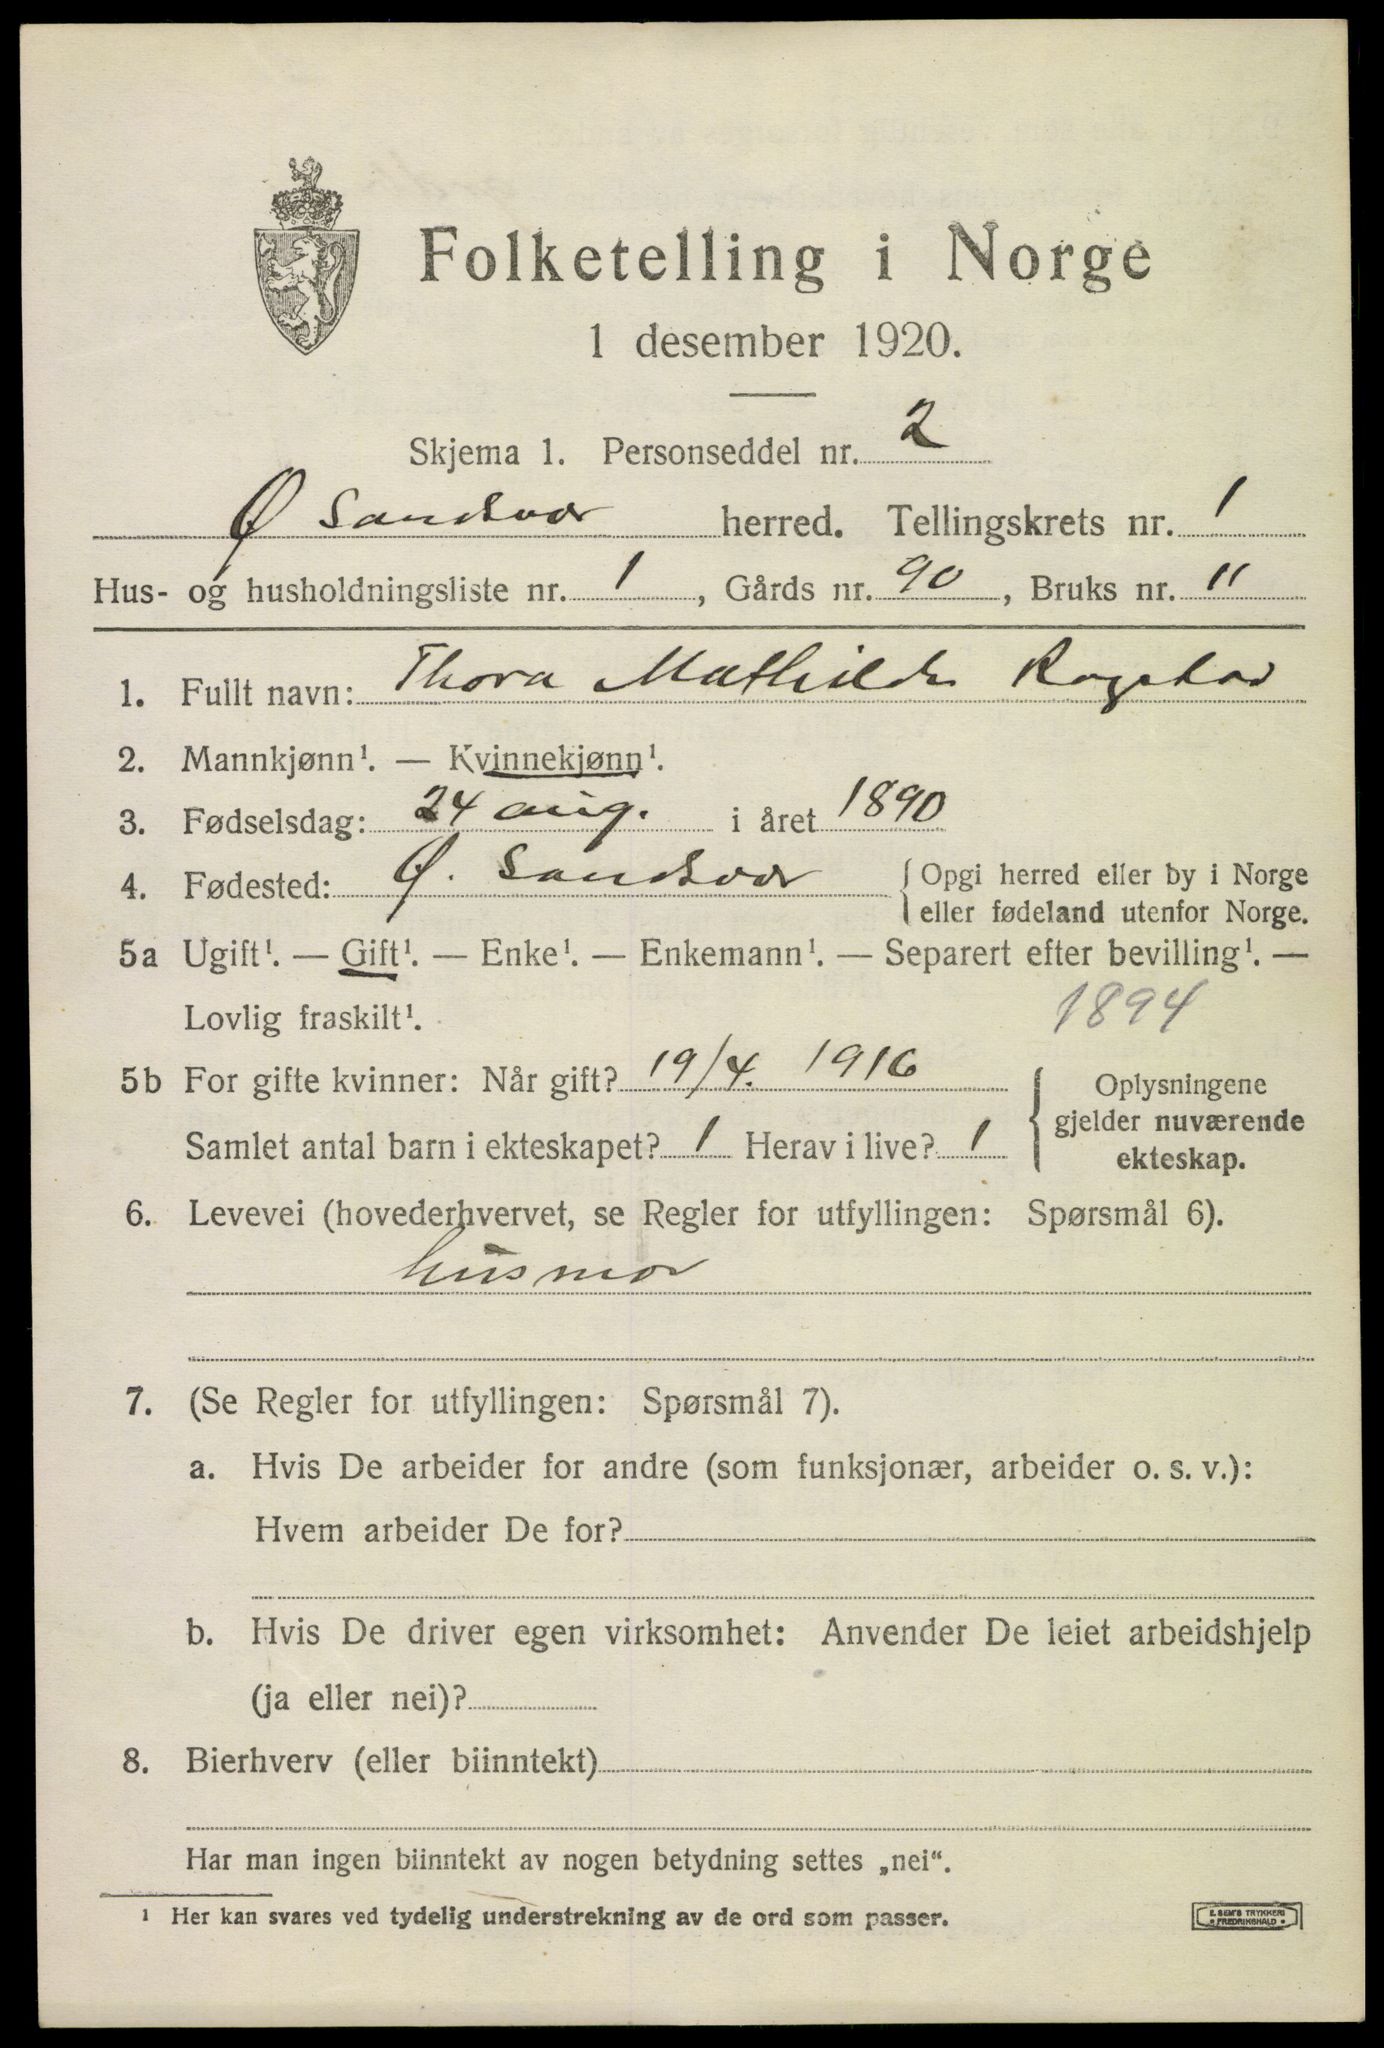 Folketelling i Norge
1 desember 1920.
Skjema 1. Personseddel nr. 2
Ø Sandsvær herred. Tellingskrets nr. 1
Hus- og husholdningsliste nr. 1, Gårds nr. 90, Bruks nr. 11
1. Fullt navn: Thora Mathilde
2. Mannkjønn¹. — Kvinnekjønn¹.
3. Fødselsdag: 24 aug. i året 1890
4. Fødested: Ø. Sandsvær { Opgi herred eller by i Norge
eller fødeland utenfor Norge.
5a Ugift¹. — Gift¹. — Enke¹. — Enkemann¹. — Separert efter bevilling¹. —
Lovlig fraskilt¹. 1894
5b For gifte kvinner: Når gift? 19/4. 1916
Samlet antal barn i ekteskapet? 1 Herav i live? 1
{ Oplysningene
gjelder nuværende
ekteskap.
6. Levevei (hovederhvervet, se Regler for utfyllingen: Spørsmål 6).
husmor
7. (Se Regler for utfyllingen: Spørsmål 7).
a. Hvis De arbeider for andre (som funksjonær, arbeider o. s. v.):
Hvem arbeider De for?
b. Hvis De driver egen virksomhet: Anvender De leiet arbeidshjelp
(ja eller nei)?
8. Bierhverv (eller biinntekt)
Har man ingen biinntekt av nogen betydning settes „nei“.
¹ Her kan svares ved tydelig understrekning av de ord som passer.
E. SEM'S TRYKKERI
• FREDRIKSHALD •